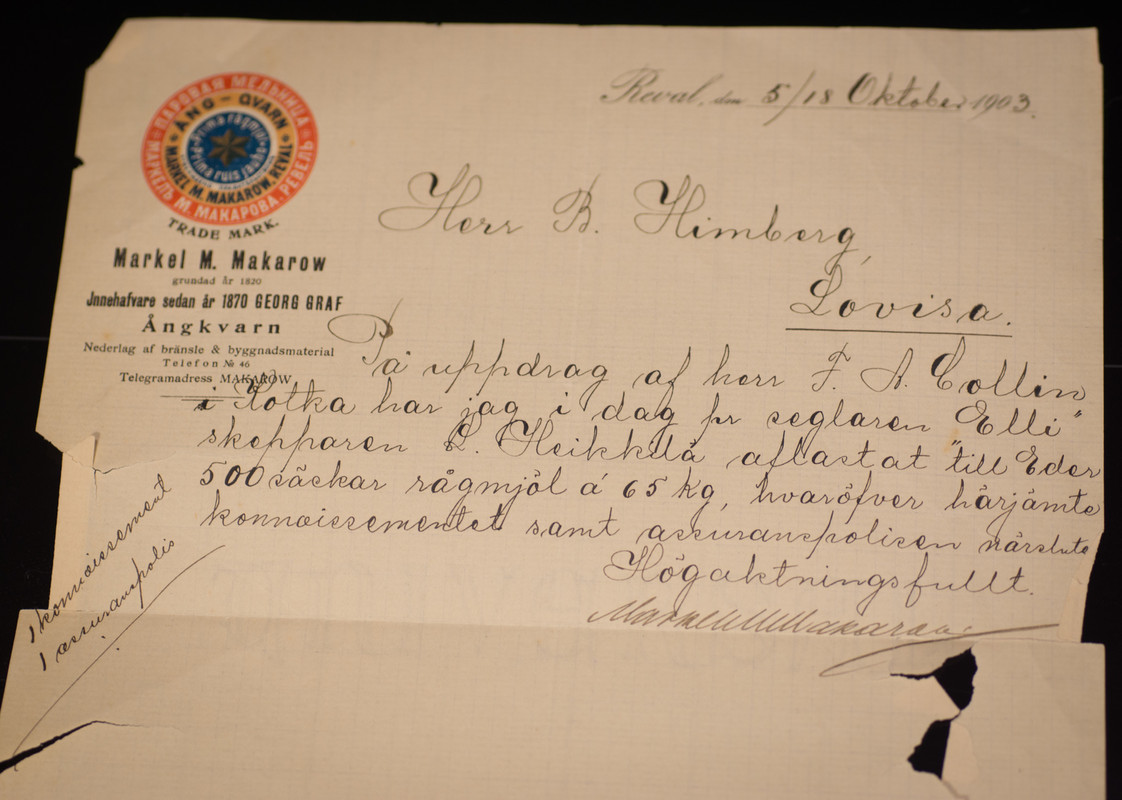 ПАРОВАЯ МЕЛЬНИЦА
МАРКЕЛЪ М. МАКАРОВА. РЕВЕЛЬ
ÅNG-QVARN
MARKEL M. MAKAROW, REVAL
prima rågmjöl
prima ruis jauho
TRADE MARK.
Markel M. Makarow
grundad år 1820
Jnnehafvare sedan år 1870 GEORG GRAF
Ångkvarn
Nederlag af bränsle & byggnadsmaterial
Telefon № 46
Telegramadress MAKAROW
Reval, den 5/18 Oktober 1903.
Herr B. Himberg,
Lovisa.
På uppdrag af herr F. A. Collin
i Kotka har jag i dag pr seglaren "Elli"
skepparen L. Heikkilä aflastat till Eder
500 säckar rågmjöl á 65 kg, hvaröfver härjämte
konnoissementet samt assuranspolisen närslute
Högaktningsfullt.
Markel M Makarow
1 konnoissement
1 assuranspolis